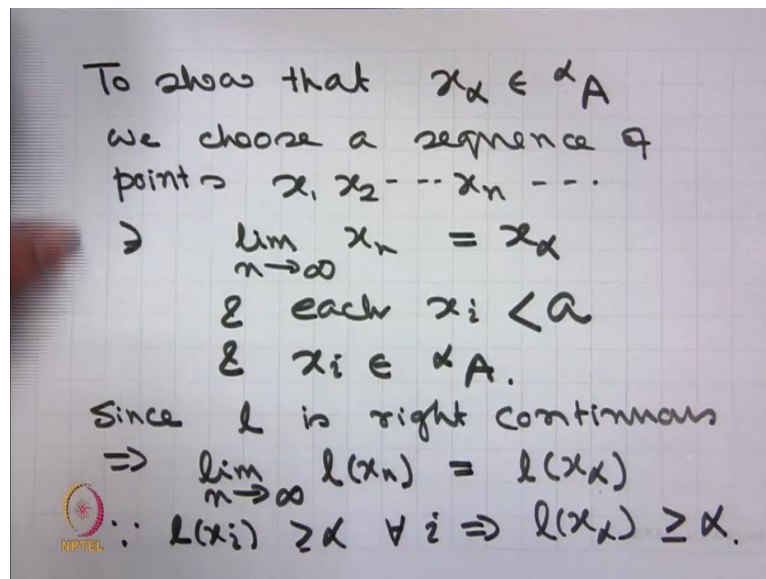 To show that x_α ∈ ^αA
we choose a sequence of
points x₁ x₂ --- x_n ---
∋ lim_{n→∞} x_n = x_α
& each x_i < a
& x_i ∈ ^αA.
Since l is right continuous
⇒ lim_{n→∞} l(x_n) = l(x_α)
∵ l(x_i) ≥ α ∀ i ⇒ l(x_α) ≥ α.
NPTEL